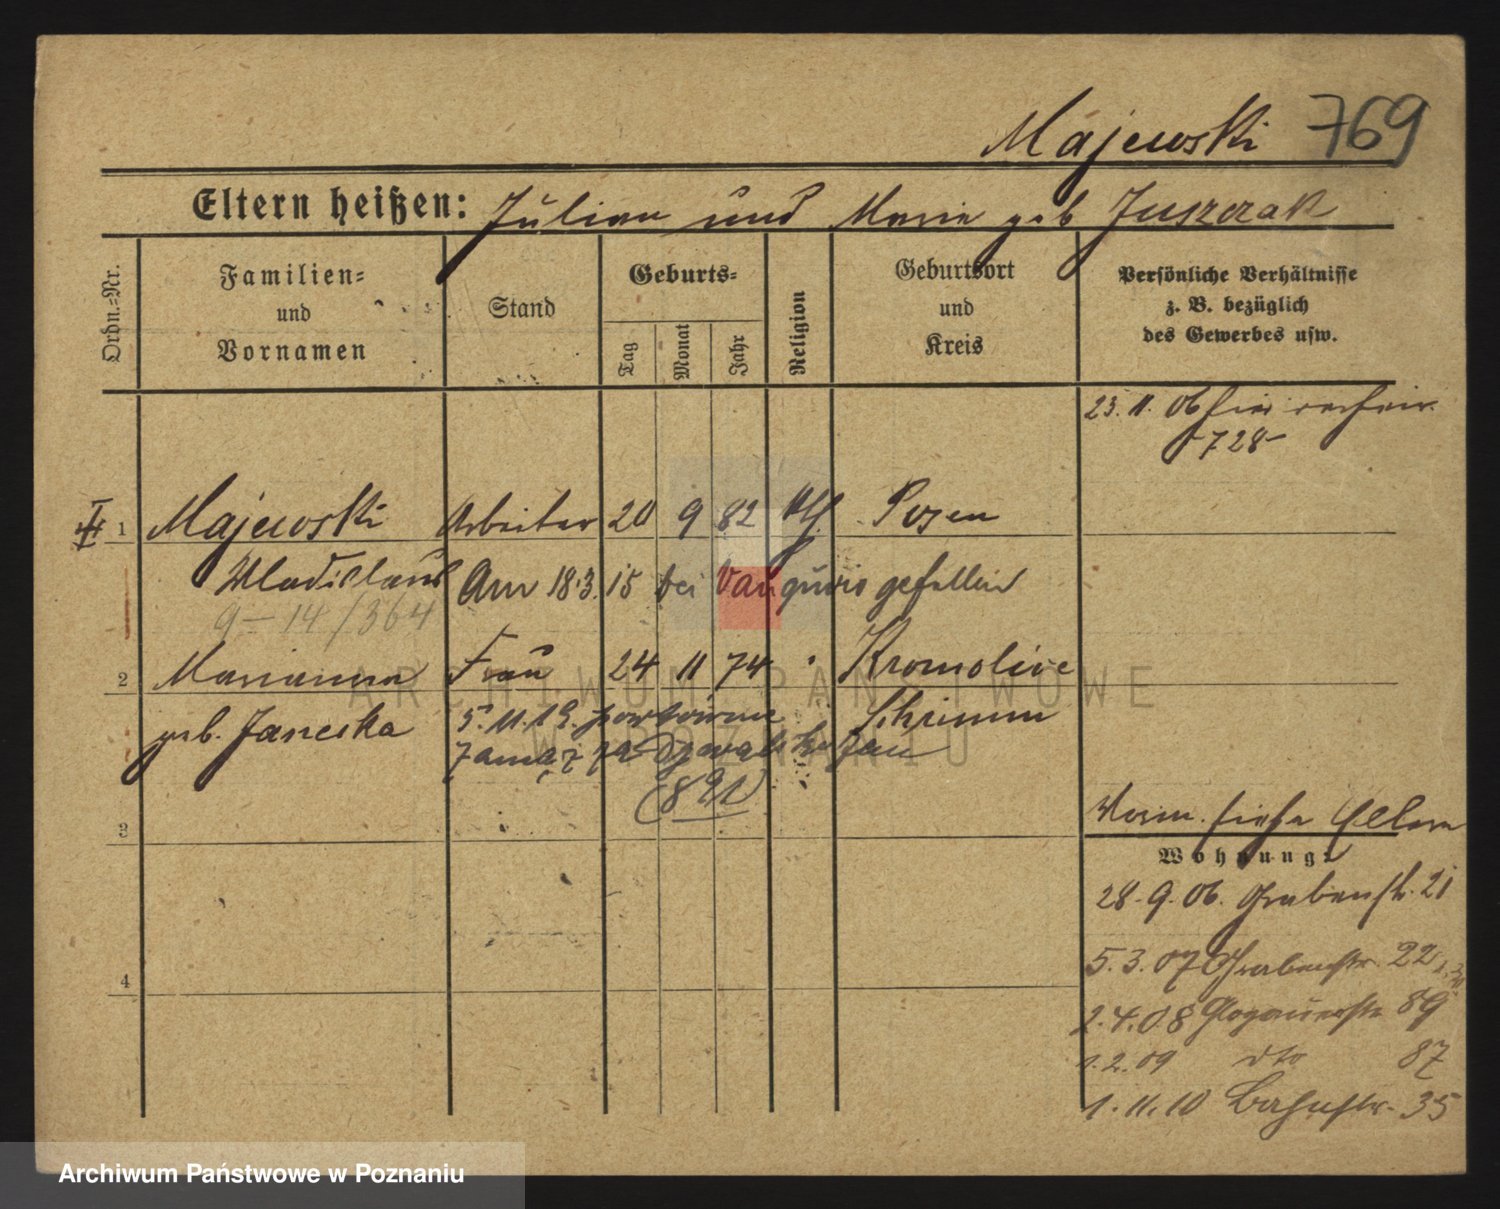 Majewski 769
Eltern heißen: Julian und Marie geb Juszczak
Ordn.=Nr.
Familien=
und
Vornamen
Stand
Geburts=
Tag
Monat
Jahr
Religion
Geburtsort
und
Kreis
Persönliche Verhältnisse
z. B. bezüglich
des Gewerbes usw.
23. 11. 06
-728-
1 Majewski Arbeiter 20 9 82 Posen
Wladislaus Am 18.3.15 bei gefallen
9-14/364
2 Marianna Frau 24 11 74 Kromolice
geb. Janecka 5.11.19. powtórnie Schrimm
zamąż za Jan
(891)
3
Vorm. siehe Eltern
Wohnung:
28.9.06. Grabenstr. 21
4
5.3.07 Grabenstr. 22
2.4.08 Glogauerstr 89
1.2.09 dto 87
1.11.10 Bahnstr. 35
ARCHIWUM PAŃSTWOWE
W POZNANIU
Archiwum Państwowe w Poznaniu